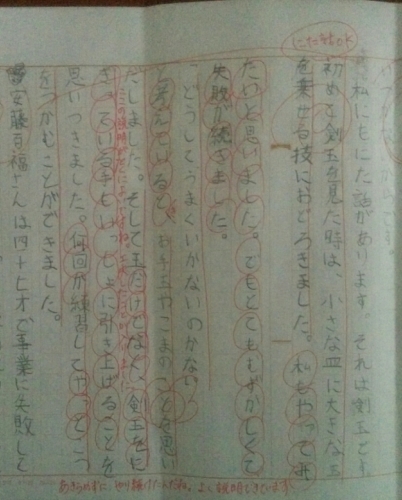 にた話OK
私にもにた話があります。それは剣玉です。
初めて剣玉を見た時は、小さな皿に大きな玉
を乗せる技におどろきました。私もやってみ
たいと思いました。でもとてもむずかしくて
失敗が続きました。
どうしてうまくいかないのかな
と考えていると、お手玉やこまのことを思い
だしました。そして玉だけでなく、剣玉をに
ぎっている手もいっしょに引き上げることを
思いつきました。何回か練習してやってこつ
をつかむことができました。
安藤百福さんは四十七才で事業に失敗して
あきらめずに、やり続けたんだね。よく説明しています